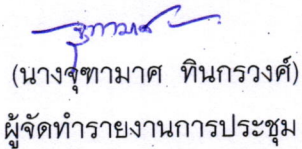 จุฑามาศ
(นางจุฑามาศ ทินกรวงศ์)
ผู้จัดทำรายงานการประชุม